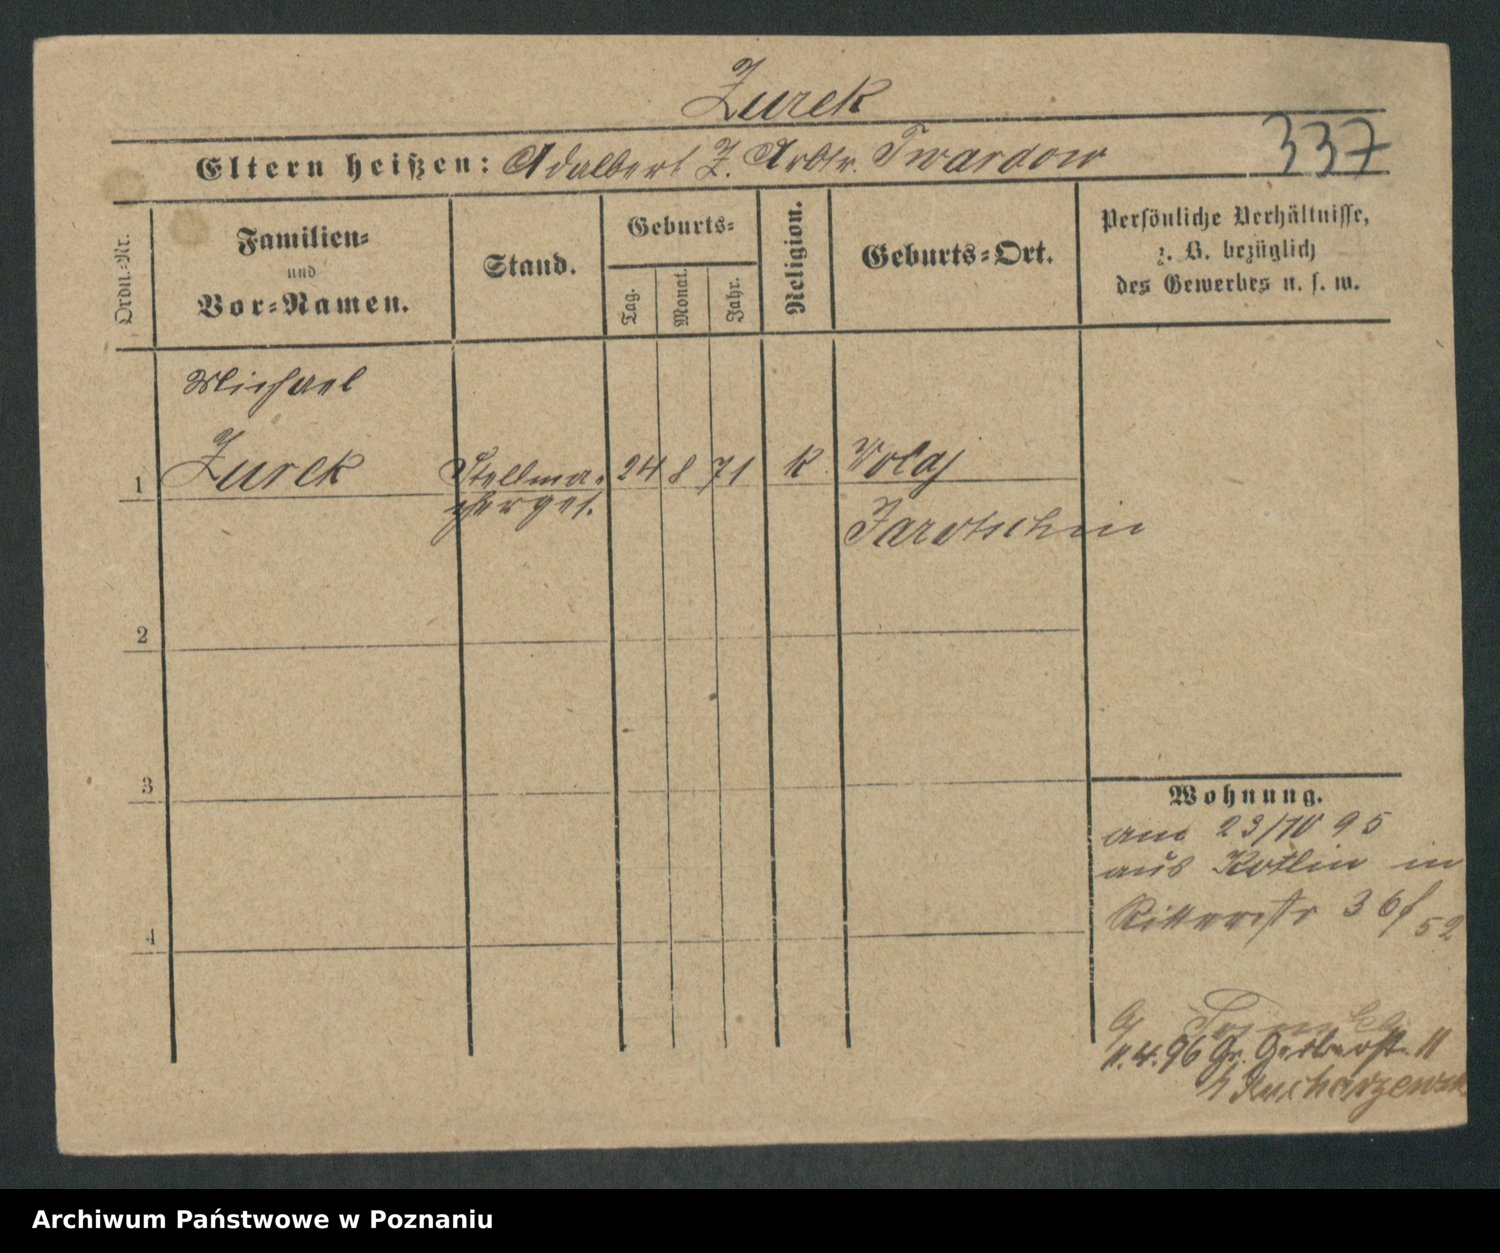 Zurek
337
Eltern heißen: Adalbert Z. Arbtr. Twardow
Ordn.-Nr.
Familien-
und
Vor-Namen.
Stand.
Geburts-
Tag.
Monat.
Jahr.
Religion.
Geburts-Ort.
Persönliche Verhältnisse,
z. B. bezüglich
des Gewerbes u. s. w.
Michael
1 Zurek Stellma- 24 8 71 k Volaj
chergef.
Jarotschin
2
3
4
Wohnung.
am 23/10 95
aus Kotlin in
Ritterstr 36 f
52
11.4.96 Gr. Gerberstr. 11
Archiwum Państwowe w Poznaniu